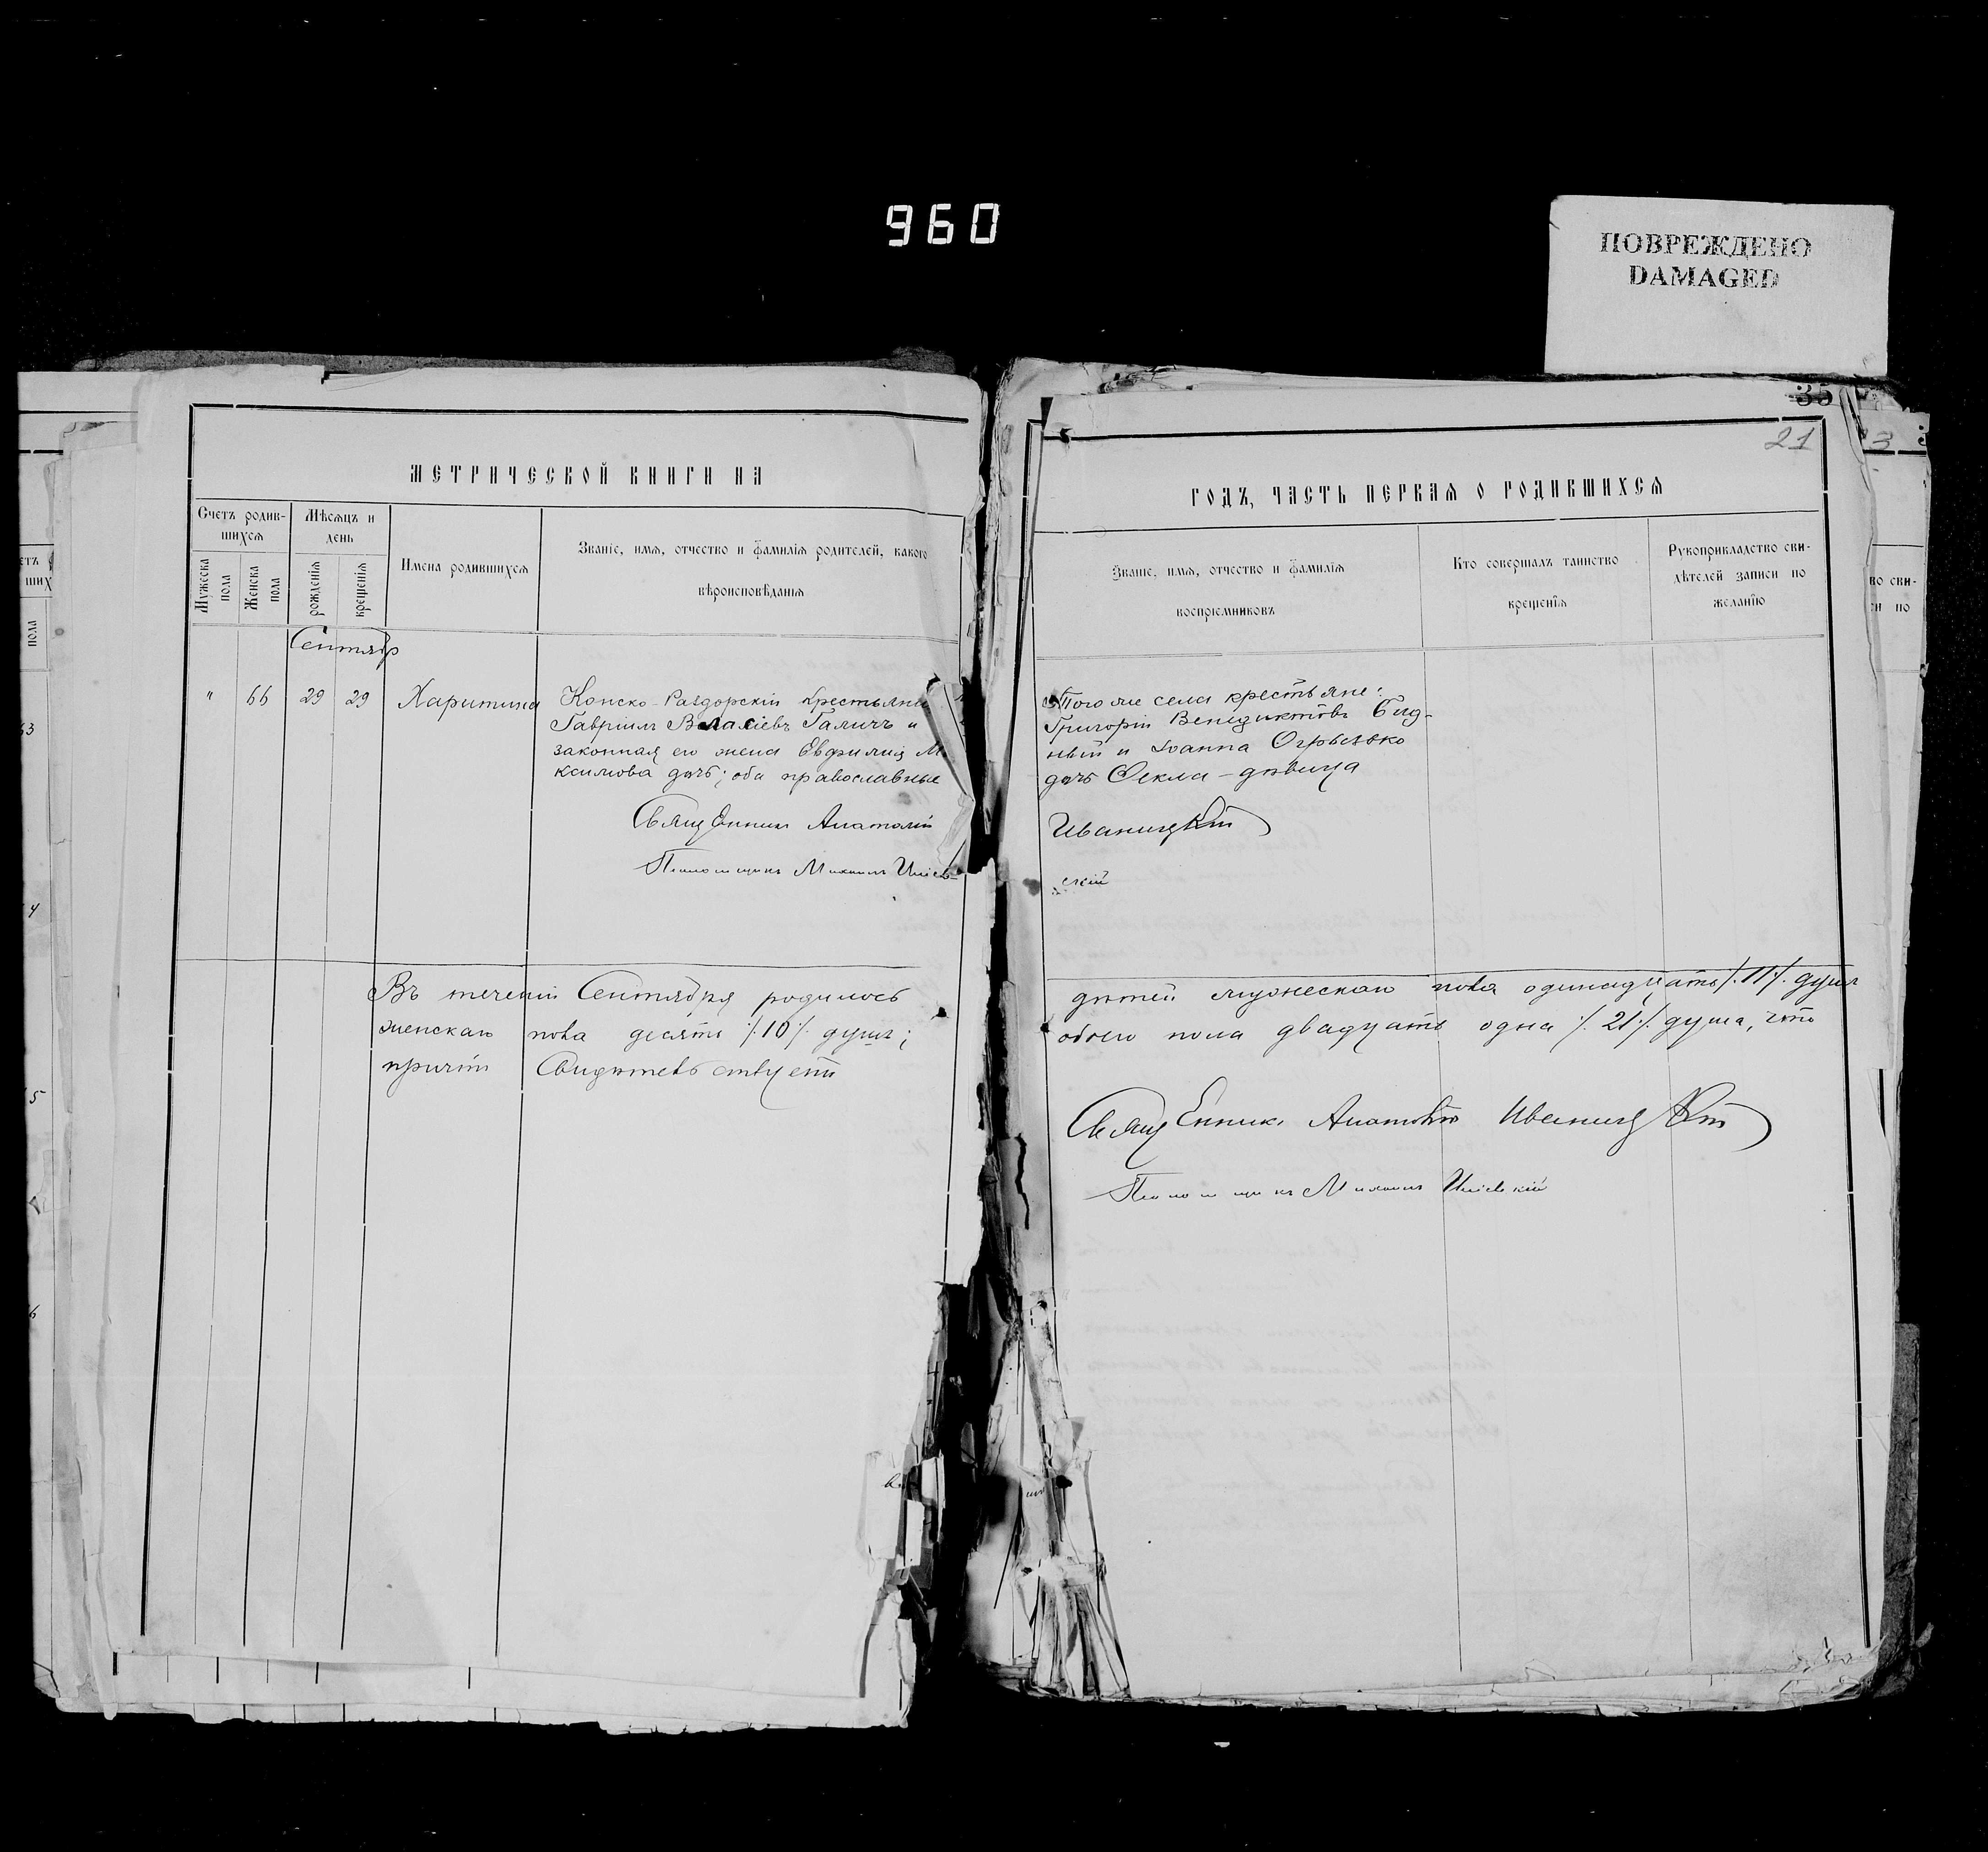 960
ПОВРЕЖДЕНО
DAMAGED
МЕТРИЧЕСКОЙ КНИГИ НА
Счетъ родив-
шихся
Мѣсяцъ и
день
Мужеска пола
Женска пола
рожденія
крещенія
Имена родившихся
Званіе, имя, отчество и фамилія родителей, какого
вѣроисповѣданія
Сентябр
" 66 29 29 Харитина
Конско-Раздорскій крестьянин
Гавріилъ Власіевъ Галичъ и
законная его жена Евфимія М
ксимова дочь; оба православные
Священникъ Анатолій
Псаломщикъ Михаилъ
Въ теченіи Сентября родилось
женскаго пола десять /.10/. душъ;
причтъ Свидѣтельствуетъ
35
21
ГОДЪ, ЧАСТЬ ПЕРВАЯ О РОДИВШИХСЯ
Званіе, имя, отчество и фамилія
воспріемниковъ
Кто совершалъ таинство
крещенія
Рукоприкладство сви-
дѣтелей записи по
желанію
Того же села крестьяне:
Григорій Венедиктовъ Бид-
ный и Іоанна Огрызько
дочь Ѳекла - дѣвица
Иваницкій
скій
дѣтей мужескаго пола одинадцать /.11/. душъ
обоего пола двадцать одна /.21/. душа, что
Священникъ Анатолій Иваницкій
Псаломщикъ Михаилъ